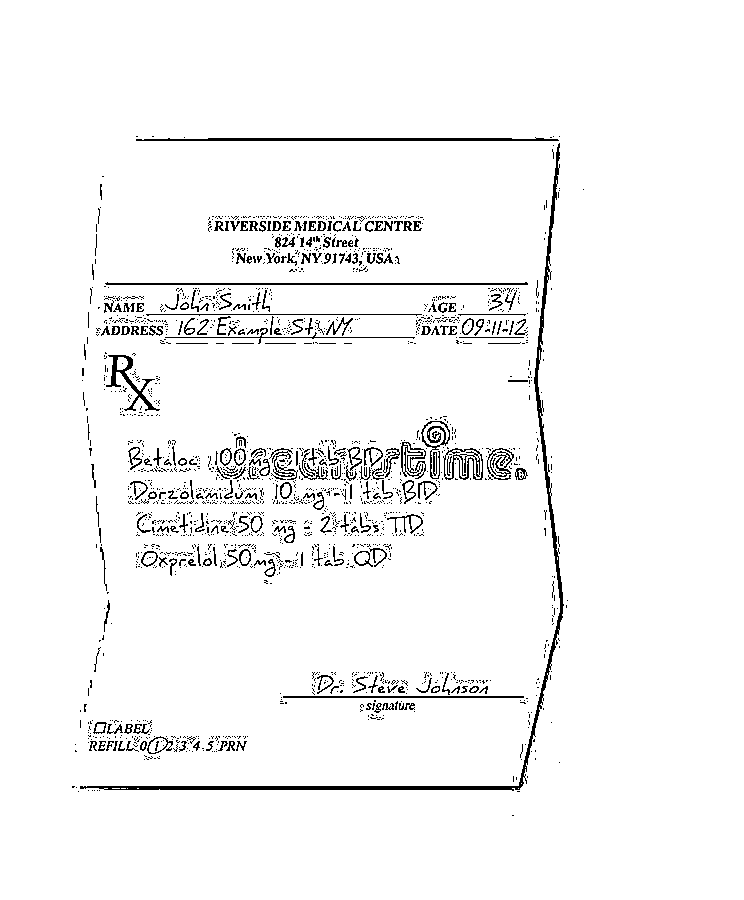 RIVERSIDE MEDICAL CENTRE
824 14th Street
New York, NY 91743, USA
NAME John Smith AGE 34
ADDRESS 162 Example St, NY DATE 09-11-12
RX
Betaloc 100mg - 1 tab BID
dreamstime.
Dorzolamidum 10 mg - 1 tab BID
Cimetidine 50 mg - 2 tabs TID
Oxprelol 50mg - 1 tab QD
Dr. Steve Johnson
signature
LABEL
REFILL 0 1 2 3 4 5 PRN